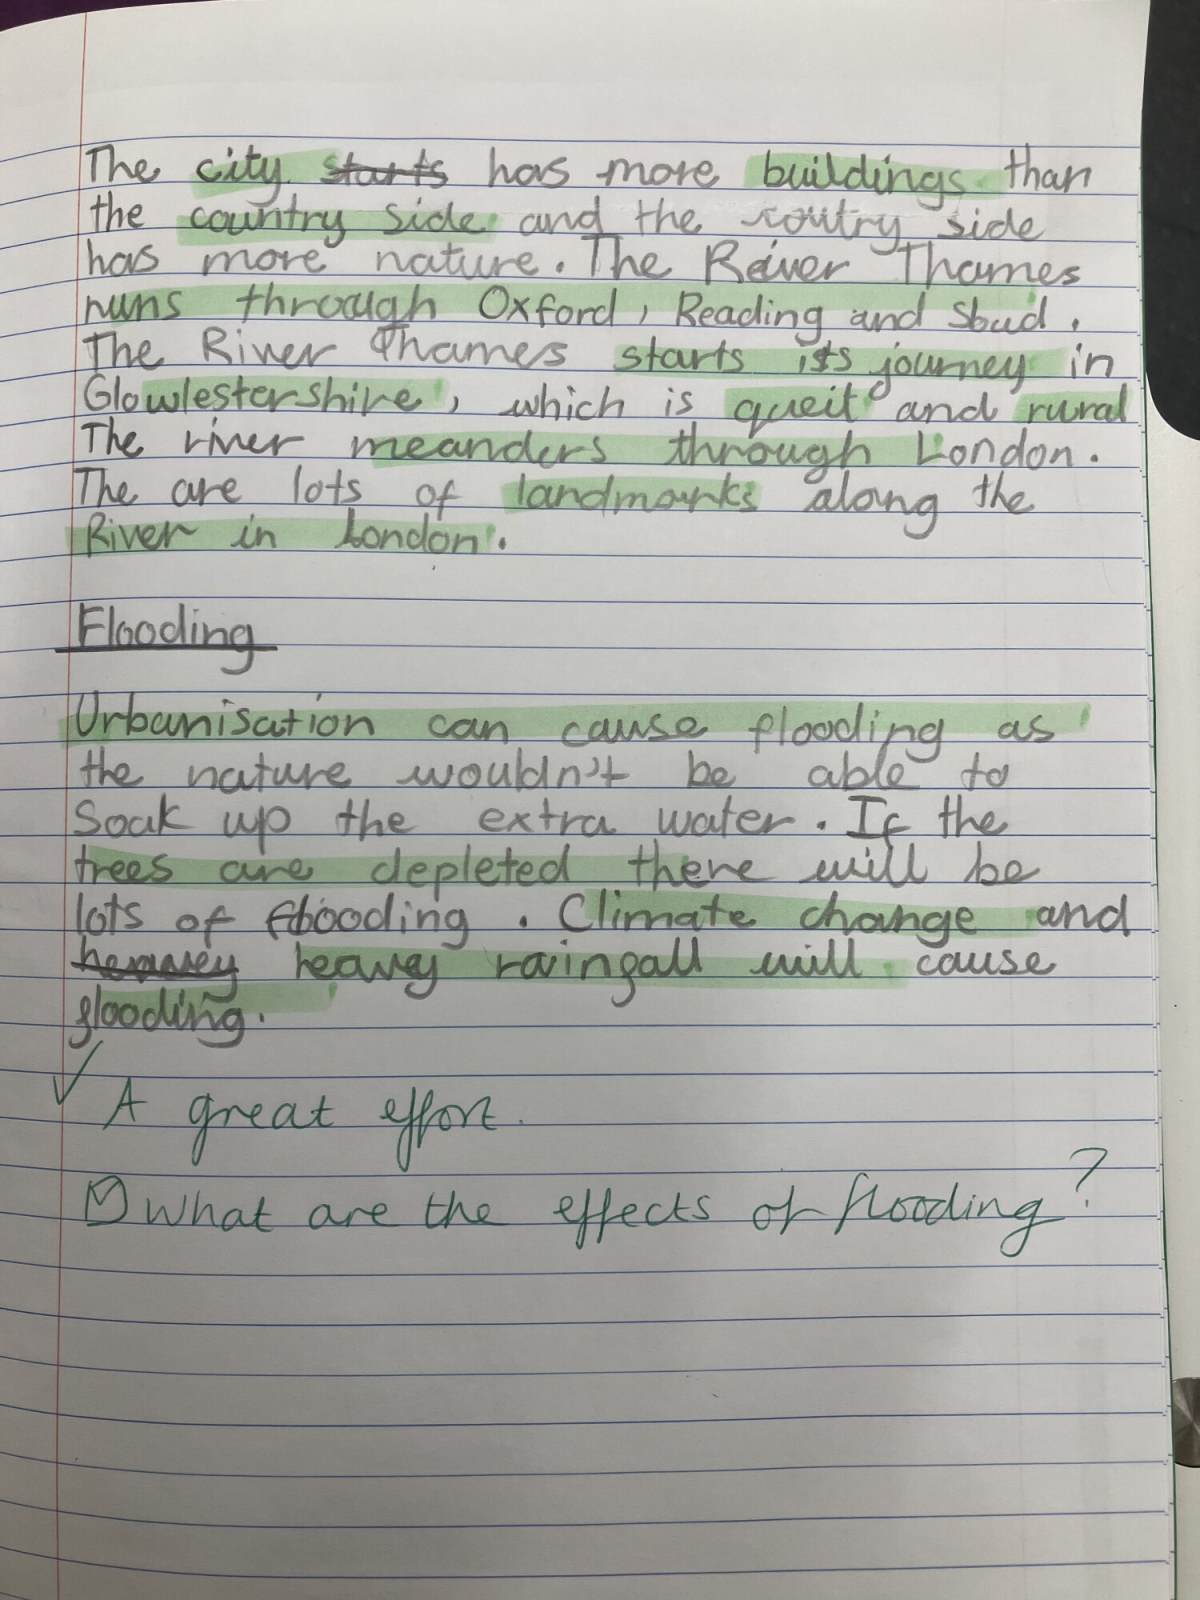 The city starts has more buildings than
the country side and the coutry side
has more nature. The River Thames
runs through Oxford, Reading and
The River Thames starts its journey in
Glowlestershire, which is queit and rural
The river meanders through London.
The are lots of landmarks along the
River in London.
Flooding
Urbanisation can cause flooding as
the nature wouldn't be able to
soak up the extra water. If the
trees are depleted there will be
lots of flooding. Climate change and
heavey rainfall will cause
flooding.
✓ A great effort.
☑ What are the effects of flooding?